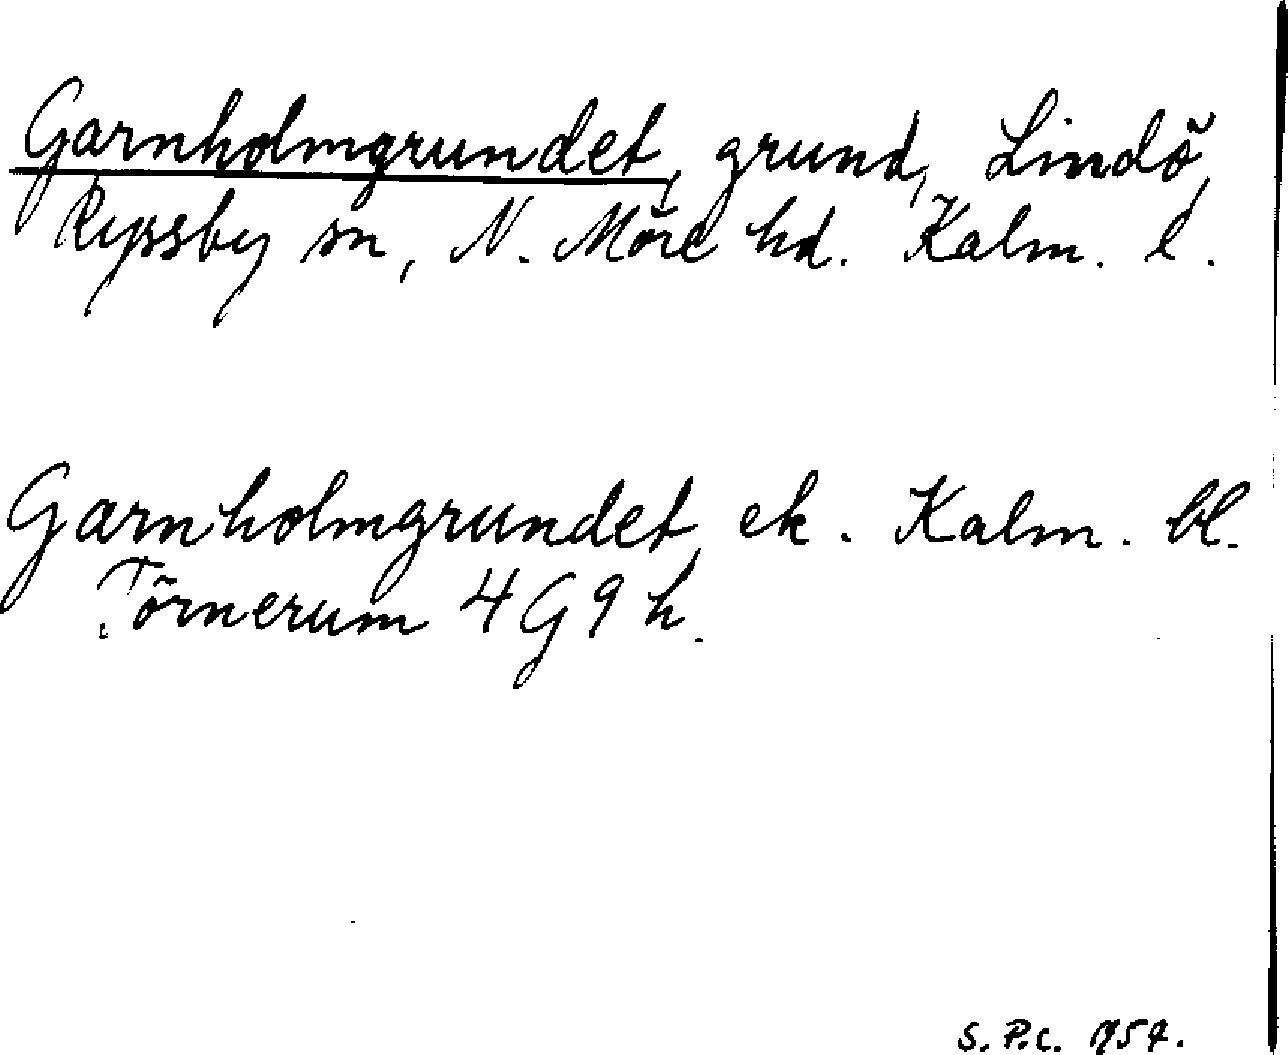 Garnholmgrundet, grund, Lindö,
Ryssby sn, N. Möre hd. Kalm. l.
Garnholmgrundet ek. Kalm. bl.
Törnerum 4G9h.
S. P.c. 1957.